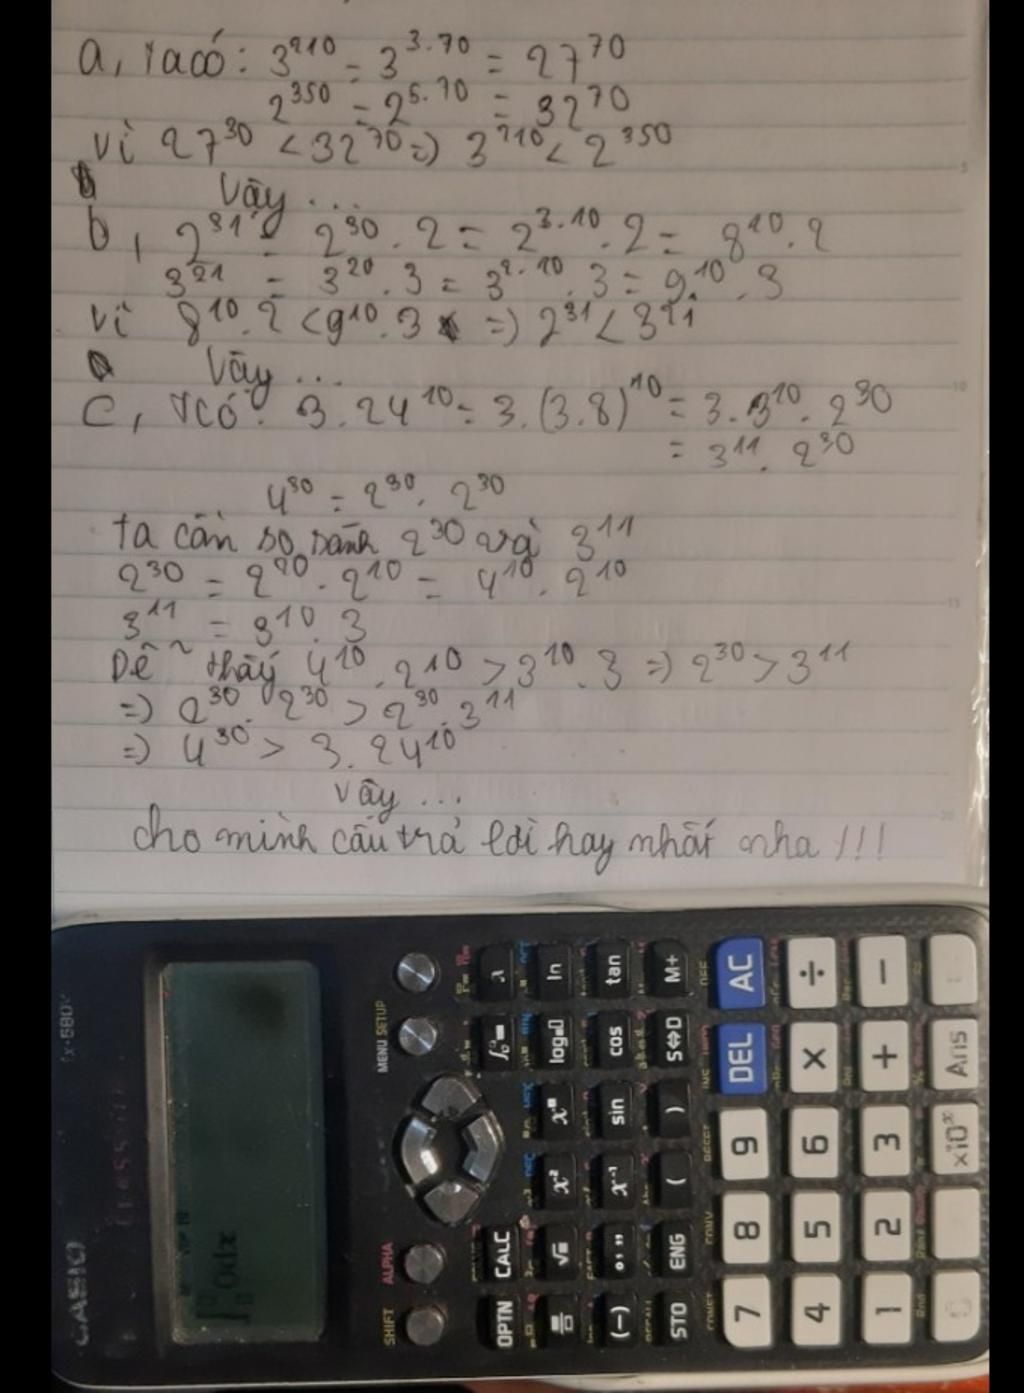 a, Ta có: 3²¹⁰ = 3³·⁷⁰ = 27⁷⁰
2³⁵⁰ = 2⁵·⁷⁰ = 32⁷⁰
Vì 27³⁰ < 32⁷⁰ => 3²¹⁰ < 2³⁵⁰
Vậy ...
b, 2³¹ = 2³⁰ . 2 = 2³·¹⁰ . 2 = 8¹⁰ . 2
3²¹ = 3²⁰ . 3 = 3²·¹⁰ . 3 = 9¹⁰ . 3
Vì 8¹⁰ . 2 < 9¹⁰ . 3 => 2³¹ < 3²¹
Vậy ...
C, Tcó: 3 . 24¹⁰ = 3 . (3.8)¹⁰ = 3 . 3¹⁰ . 2³⁰
= 3¹¹ . 2³⁰
4³⁰ = 2³⁰ . 2³⁰
ta cần so sánh 2³⁰ và 3¹¹
2³⁰ = 2²⁰ . 2¹⁰ = 4¹⁰ . 2¹⁰
3¹¹ = 3¹⁰ . 3
Dễ thấy 4¹⁰ . 2¹⁰ > 3¹⁰ . 3 => 2³⁰ > 3¹¹
=> 2³⁰ . 2³⁰ > 2³⁰ . 3¹¹
=> 4³⁰ > 3 . 24¹⁰
Vậy ...
cho mình câu trả lời hay nhất nha !!!
CASIO
SHIFT ALPHA MENU SETUP
OPTN CALC
x² ln
log
(-) x⁻¹ sin cos tan
STO ENG ( ) S⇔D M+
7 8 9 DEL AC
4 5 6 × ÷
1 2 3 + −
0 ×10ˣ Ans